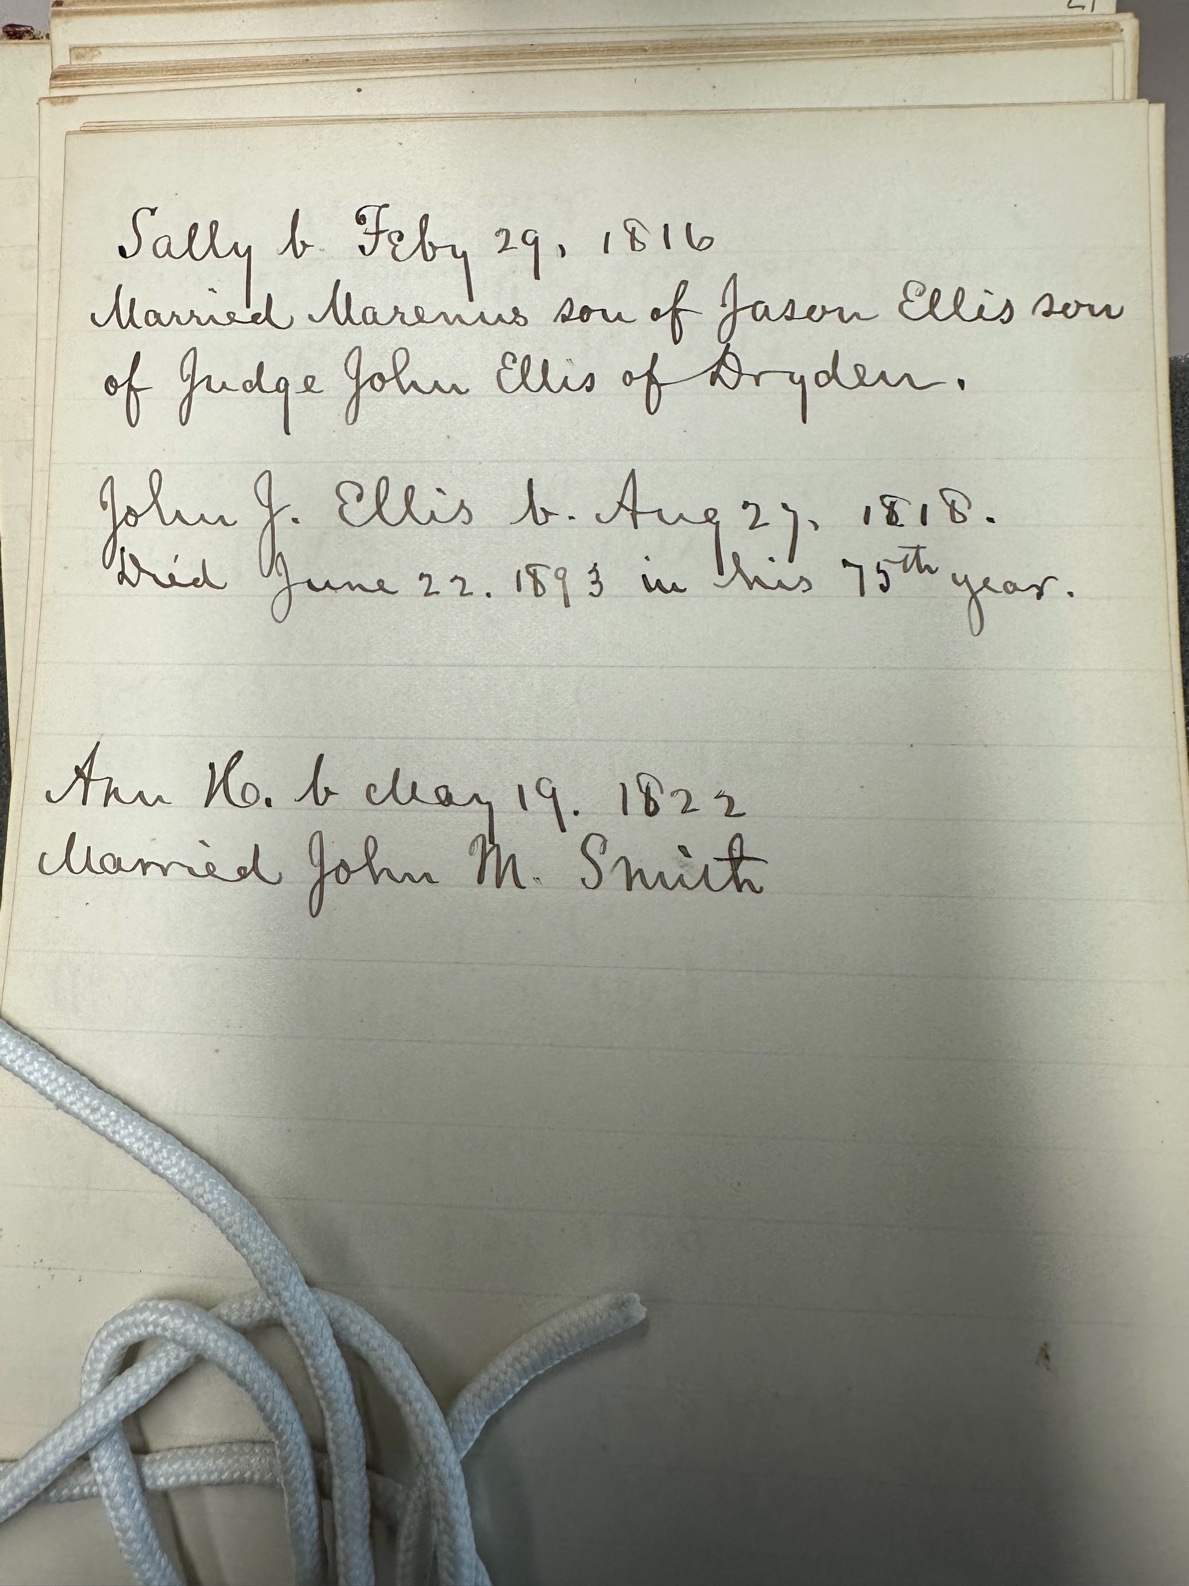 Sally b. Feby 29, 1816
Married Marenus son of Jason Ellis son
of Judge John Ellis of Dryden.
John J. Ellis b. Aug 27, 1818.
Died June 22. 1893 in his 75th year.
Ann H. b May 19. 1822
Married John M. Smith